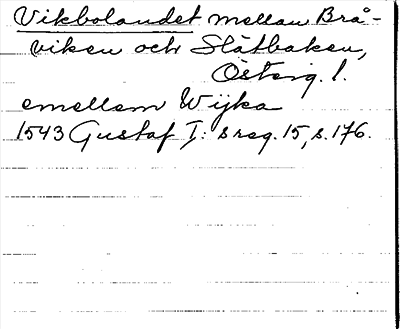 Vikbolandet mellan Brå-
viken och Slätbaken,
Österg. l.
emellem Wijka
1543 Gustaf I:s reg. 15, s. 176.